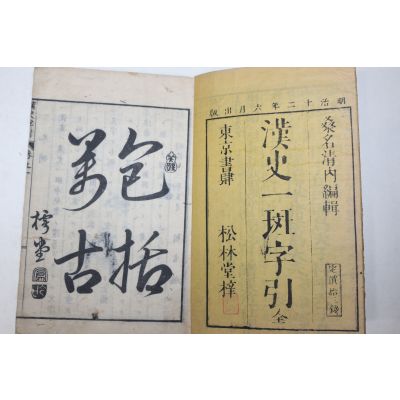 明治十二年六月出版
桑名清内編輯
漢史一斑字引 全
東京書肆 松林堂梓
包括
萬古
樗堂